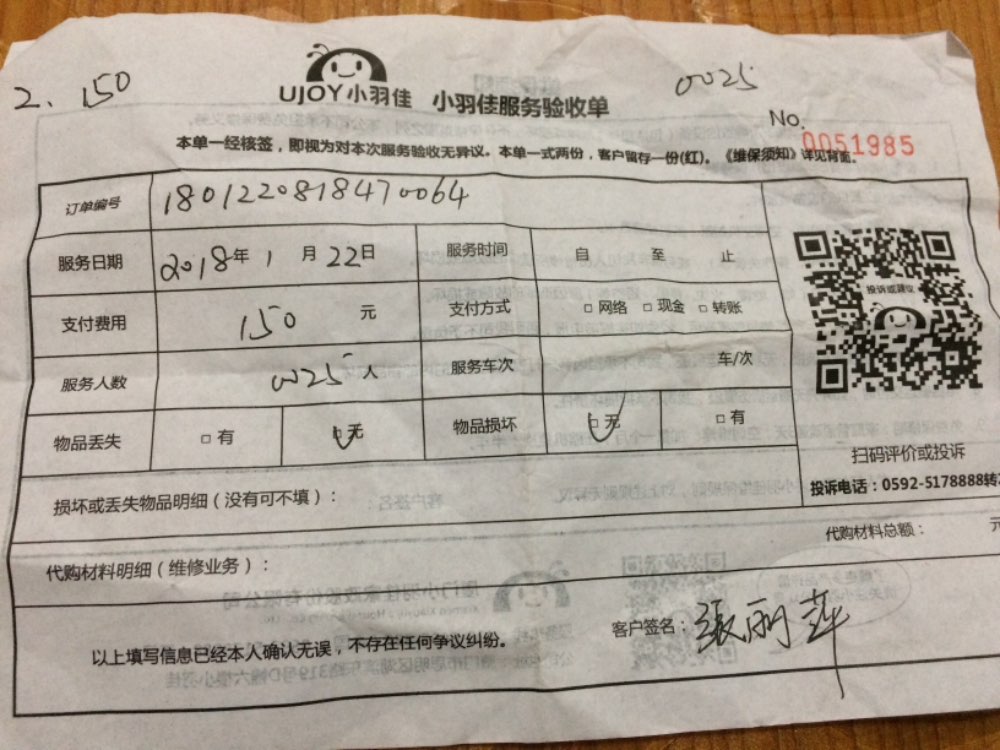 2. 150
0025
UJOY小羽佳 小羽佳服务验收单
No.
0051985
本单一经核签，即视为对本次服务验收无异议。本单一式两份，客户留存一份(红)。《维保须知》详见背面。
订单编号 180122081847 0064
服务日期 2018年 1 月 22日 服务时间 自 至 止
投诉或建议
支付费用 150 元 支付方式 □ 网络 □ 现金 □ 转账
服务人数 0025 人 服务车次 车/次
物品丢失 □ 有 □ 无 物品损坏 □ 无 □ 有
扫码评价或投诉
投诉电话：0592-5178888转
损坏或丢失物品明细（没有可不填）：
代购材料总额： 元
代购材料明细（维修业务）：
以上填写信息已经本人确认无误，不存在任何争议纠纷。 客户签名：张丽萍